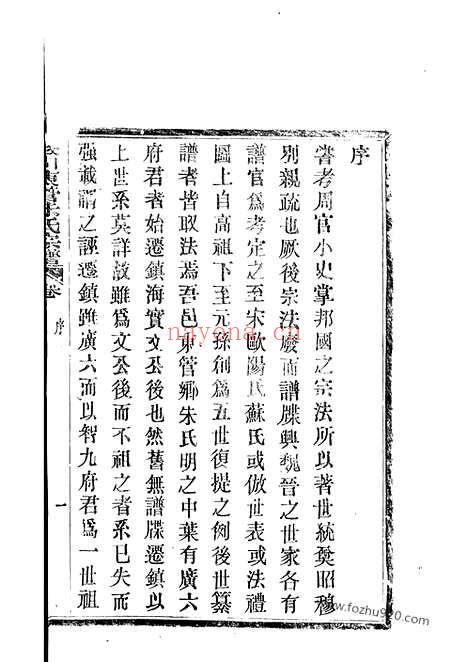 序
嘗考周官小史掌邦國之宗法所以著世統奠昭穆
別親疏也厥後宗法廢而譜牒興魏晉之世家各有
譜官為考定之至宋歐陽氏蘇氏或倣世表或法禮
圖上自高祖下至元孫創為五世復提之例後世纂
譜者皆取法焉吾邑東管鄉朱氏明之中葉有廣六
府君者始遷鎮海實文公後也然舊無譜牒遷鎮以
上世系莫詳故雖為文公後而不祖之者系已失而
強載謂之誣遷鎮雖廣六而以智九府君為一世祖
氏宗譜
卷
序
一
nayona.cn
www.fozhu920.com